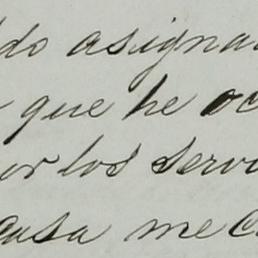 do asigna
que he oc
or los servi
casa me c